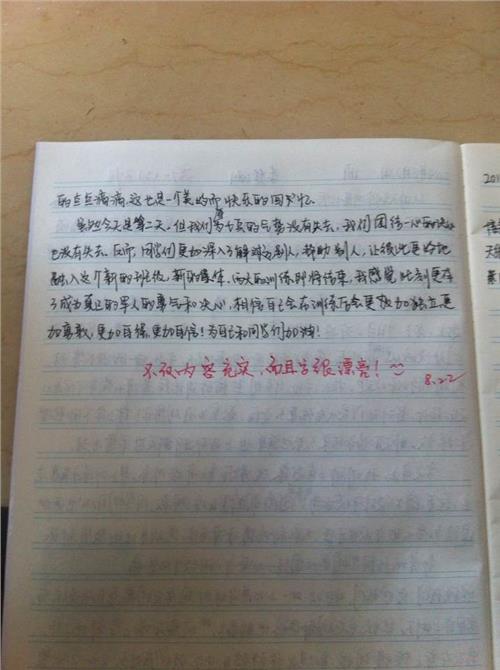 的点点滴滴,这也是一个美好而快乐的回忆。
虽然今天是第二天,但我们吃苦的气势没有失去,我们团结一心的
也没有失去。反而,同学们更加深入了解对方别人,帮助别人,让彼此更好地
融入这个新的班级,新的集体。两天的训练即将结束,我感觉此刻更有
了成为真正的军人的勇气和决心,相信自己会在训练后会更加独立,更
加勇敢,更加自强,更加自信!为自己和同学们加油!
不仅内容充实,而且字很漂亮!
8.22
201